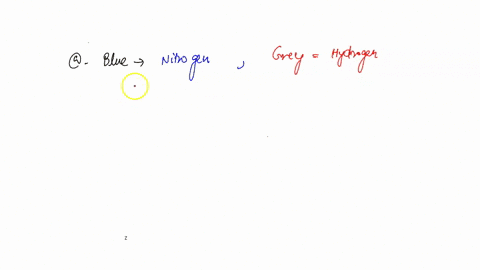 @. Blue → Nitrogen , Grey = Hydrogen